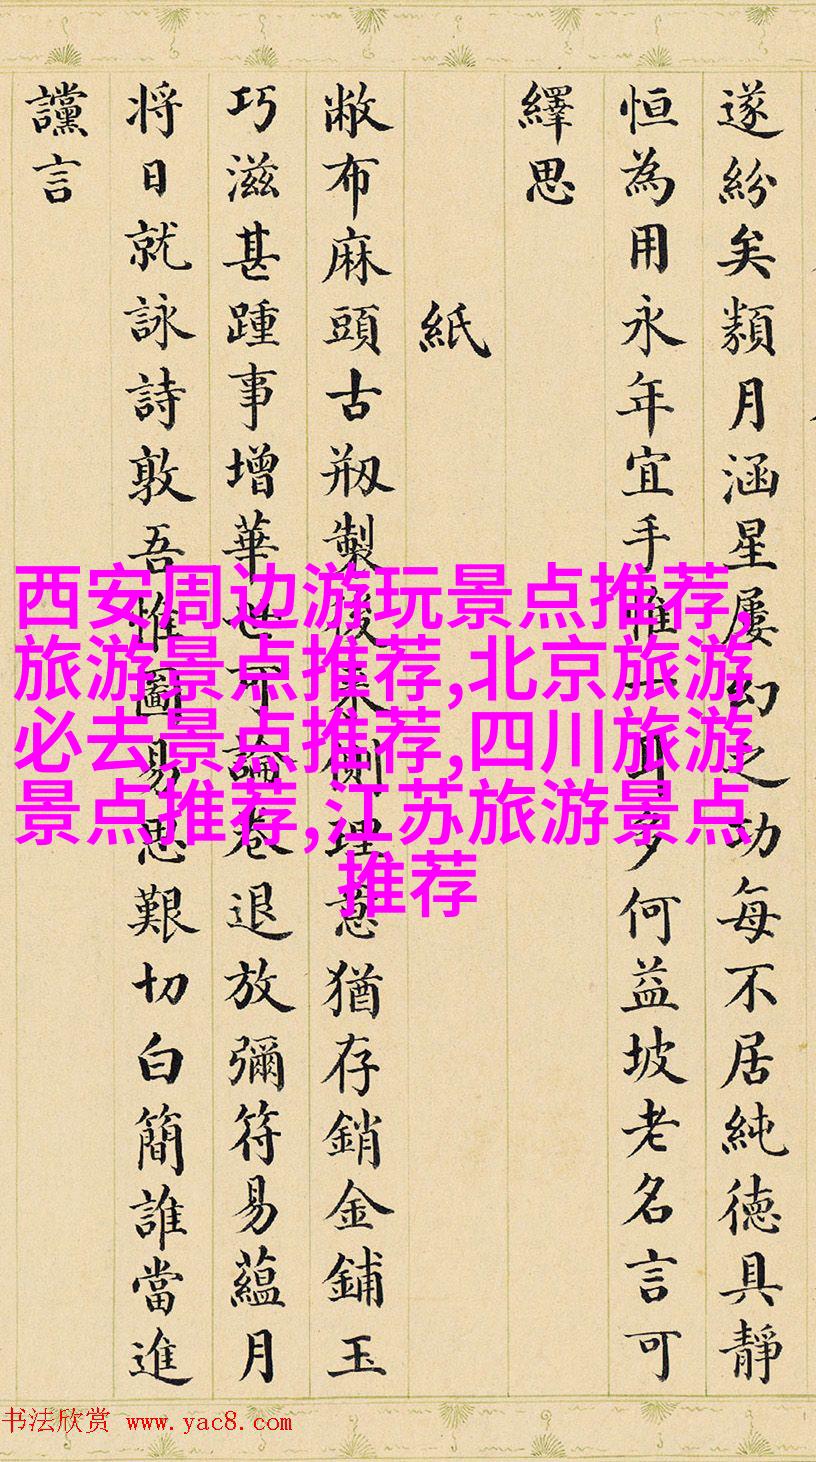 遂紛矣類月涵星屢幻之功每不居純德具靜
恒為用永年宜手惟一耳多何益坡老名言可
繹思
紙
敝布麻頭古剏製後來側理意猶存銷金鋪玉
巧滋甚踵事增華世可論卷退放彌符易蘊月
將日就詠詩敦吾惟圖易思艱切白簡誰當進
讜言
西安周边游玩景点推荐,
旅游景点推荐,北京旅游
必去景点推荐,四川旅游
景点推荐,江苏旅游景点
推荐
书法欣赏 www.yac8.com